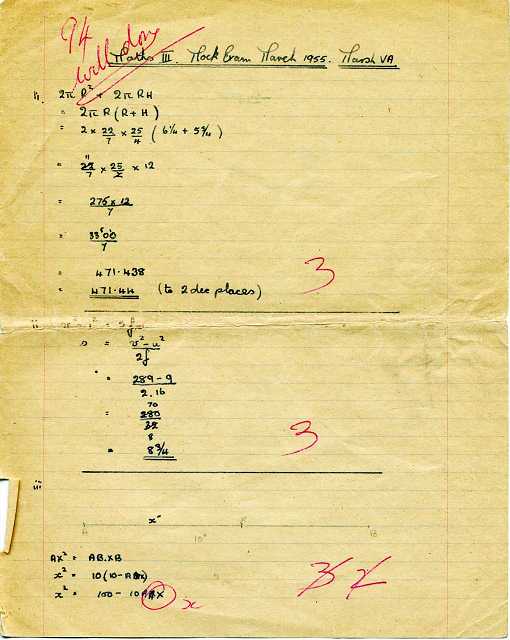 94
Well done
Maths III. Mock Exam March 1955. Marsh VA
i). 2π R² + 2π RH
= 2π R (R + H)
= 2 × 22/7 × 25/4 ( 6¼ + 5¾ )
= 22/7 × 25/2 × 12
11
= 275 × 12/7
= 3300/7
= 471.438
= 471.44 (to 2 dec places)
3
ii
s = v² - u²/2f
= 289 - 9/2.16
70
= 280/32
8
= 8¾
3
iii
x"
A B
10"
AX² = AB.XB
x² = 10(10-x)
x² = 100 - 10 X
x